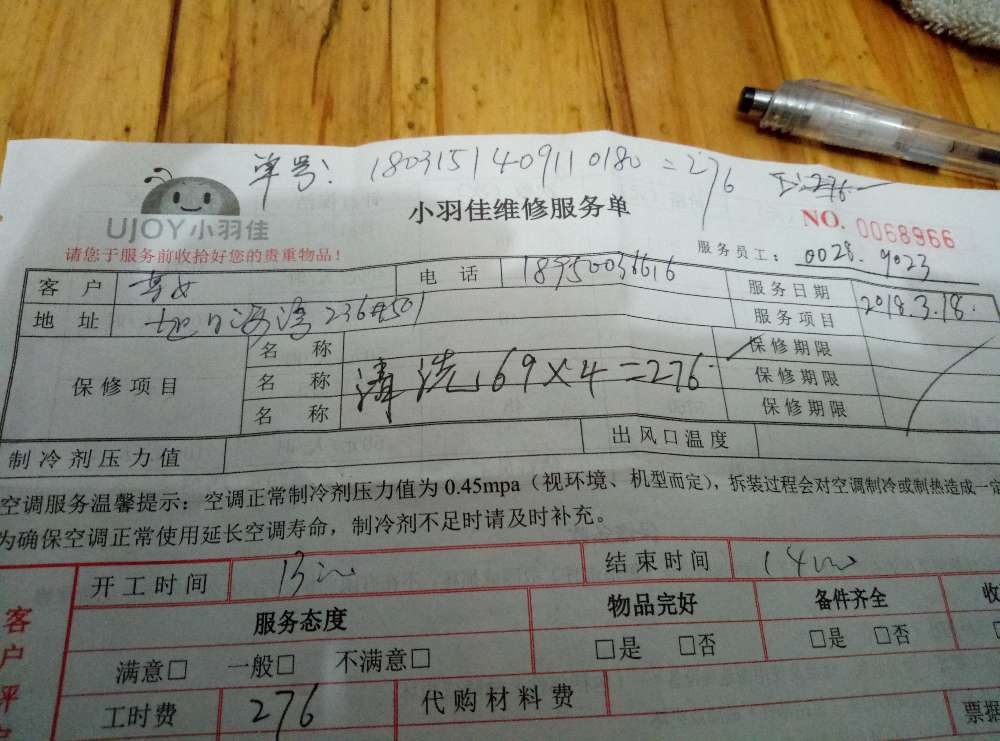 单号: 180315140911 0180 = 276 工:276
UJOY小羽佳
小羽佳维修服务单
NO. 0068966
请您于服务前收拾好您的贵重物品!
服务员工: 0028. 9023
客户 电话 18950036616 服务日期 2018.3.18.
地址 236#501 服务项目
保修项目 名称 保修期限
名称 清洗 69×4=276 保修期限
名称 保修期限
制冷剂压力值 出风口温度
空调服务温馨提示: 空调正常制冷剂压力值为 0.45mpa (视环境、机型而定), 拆装过程会对空调制冷或制热造成一定
为确保空调正常使用延长空调寿命, 制冷剂不足时请及时补充。
开工时间 13 结束时间 14
客户评 服务态度 物品完好 备件齐全 收
满意□ 一般□ 不满意□ □是 □否 □是 □否
工时费 276 代购材料费 票据